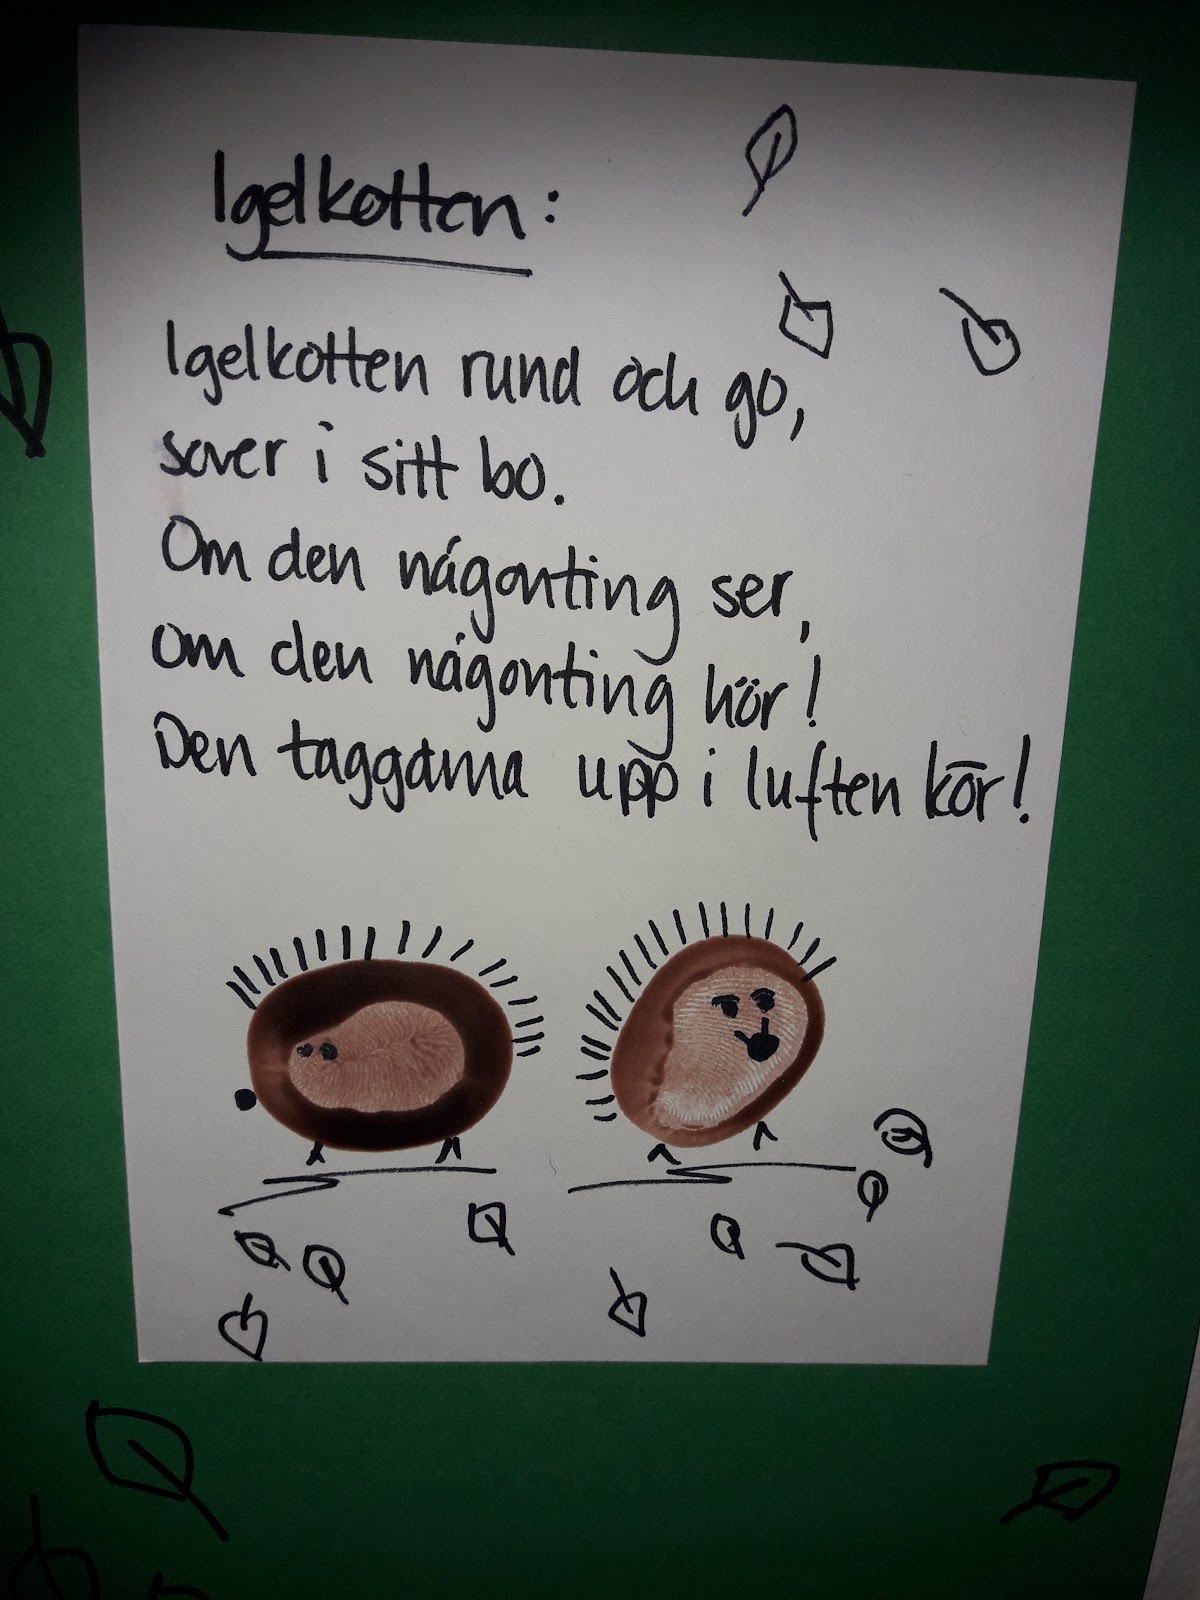 Igelkotten:
Igelkotten rund och go,
sover i sitt bo.
Om den någonting ser,
om den någonting hör!
Den taggarna upp i luften kör!